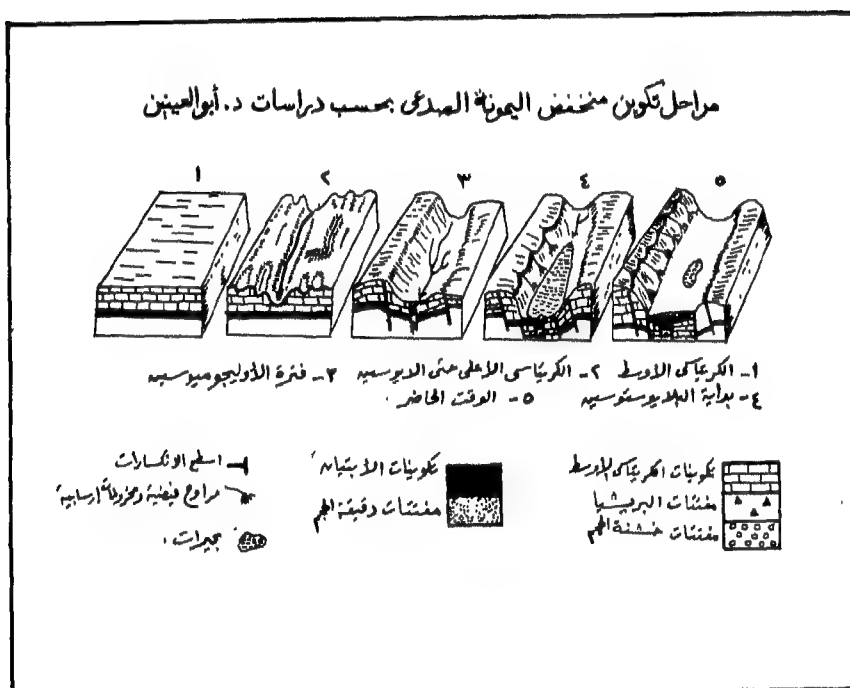 مراحل تكوين منخفض اليمونة الصدعى بحسب دراسات د. أبو العينين
١ ٢ ٣ ٤ ٥
١- الكريتاسى الأوسط ٢- الكريتاسى الأعلى حتى الايوسين ٣- فترة الأوليجوميوسين
٤- بداية البلايوستوسين ٥- الوقت الحاضر .
تكوينات الكريتاسى الأوسط
مفتتات البريشيا
مفتتات خشنة الحجم
تكوينات الأبتيان
مفتتات دقيقة الحجم
اسطح الانكسارات
مراوح فيضية ومخروطات ارسابية
بحيرات .